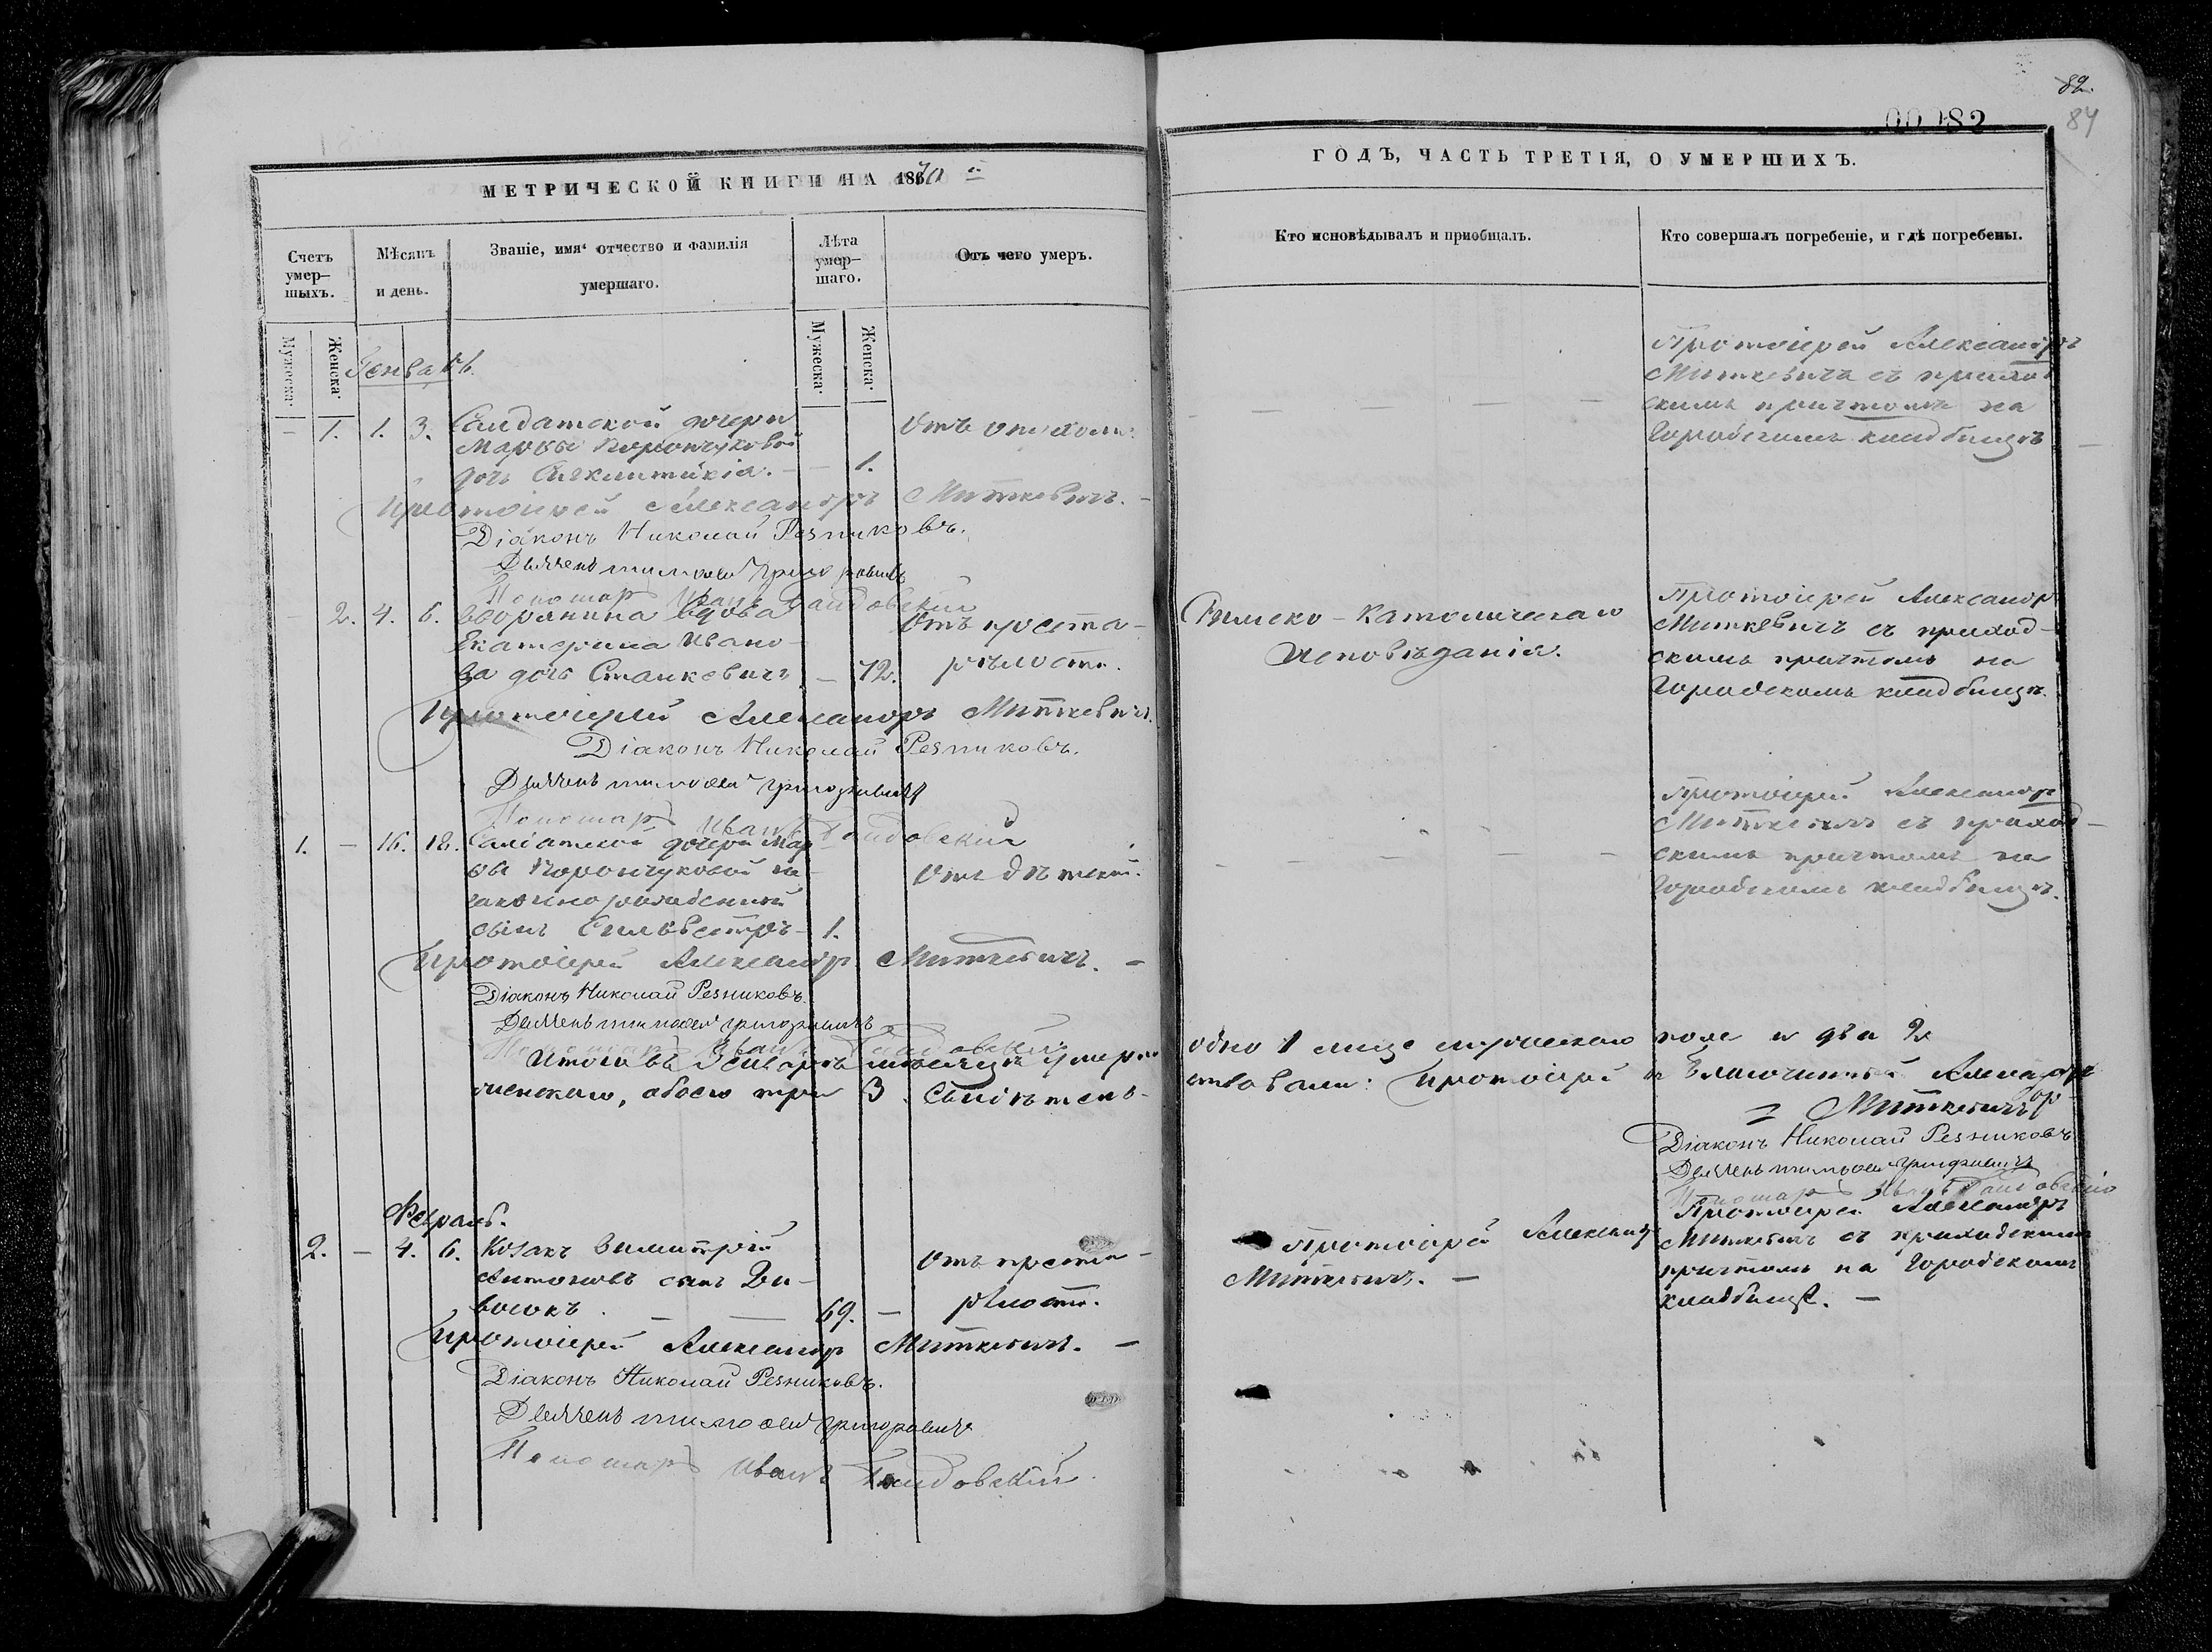 82.
84
00082
МЕТРИЧЕСКОЙ КНИГИ НА 1870й
ГОДЪ, ЧАСТЬ ТРЕТІЯ, О УМЕРШИХЪ.
Счетъ умер-шыхъ.
Мѣсяцъ и день.
Званіе, имя отчество и фамилія
умершаго.
Лѣта умер-шаго.
Отъ чего умеръ.
Кто исповѣдывалъ и пріобщалъ.
Кто совершалъ погребеніе, и гдѣ погребены.
Мужеска. Женска. Мужеска. Женска.
Генварь.
— 1. 1. 3. Салдатской дочери
Марѳы Ворончуковой
дочь Синклитикія. — 1.
Протоіерей Александръ
Миткевичъ съ приход-
скимъ причтомъ на
Городскомъ кладбищѣ
Протоіерей Александръ Миткевичъ. —
Діаконъ Николай Резниковъ.
Дьячекъ Тимоѳей Григоровичъ
Пономарь Иванъ
— 2. 4. 6. Дворянина вдова
Екатерина Ивано-
ва дочь Станкевичъ — 72.
Отъ преста-
рѣлости.
Римско-Католическаго
Исповѣданія.
Протоіерей Александръ
Миткевичъ съ приход-
скимъ причтомъ на
Городскомъ кладбищѣ.
Протоіерей Александръ Миткевичъ.
Діаконъ Николай Резниковъ.
Дьячекъ Тимоѳей Григоровичъ
Пономарь Иванъ
1. — 16. 18. Салдатской дочери Мар
ѳы Ворончуковой не-
законнорожденный
сынъ Сильвестръ — 1.
Протоіерей Александръ
Миткевичъ съ приход-
скимъ причтомъ на
Городскомъ кладбищѣ.
Протоіерей Александръ Миткевичъ. —
Діаконъ Николай Резниковъ.
Дьячекъ Тимоѳей Григоровичъ
Пономарь Иванъ
Итого въ Генварѣ мѣсяцѣ умерло одно 1 лице мужескаго пола и два 2
женскаго, обоего три 3. Свидѣтель-ствовали: Протоіерей и Благочинный Александръ
Миткевичъ
Діаконъ Николай Резниковъ
Дьячекъ Тимоѳей Григоровичъ
Пономарь Иванъ
Февраль.
2. — 4. 6. Козакъ Димитрій
Антоновъ сынъ
69. —
Отъ преста-
рѣлости.
Протоіерей Александръ
Миткевичъ. —
Протоіерей Александръ
Миткевичъ съ приходскимъ
причтомъ на Городскомъ
кладбищѣ. —
Протоіерей Александръ Миткевичъ. —
Діаконъ Николай Резниковъ.
Дьячекъ Тимоѳей Григоровичъ
Пономарь Иванъ